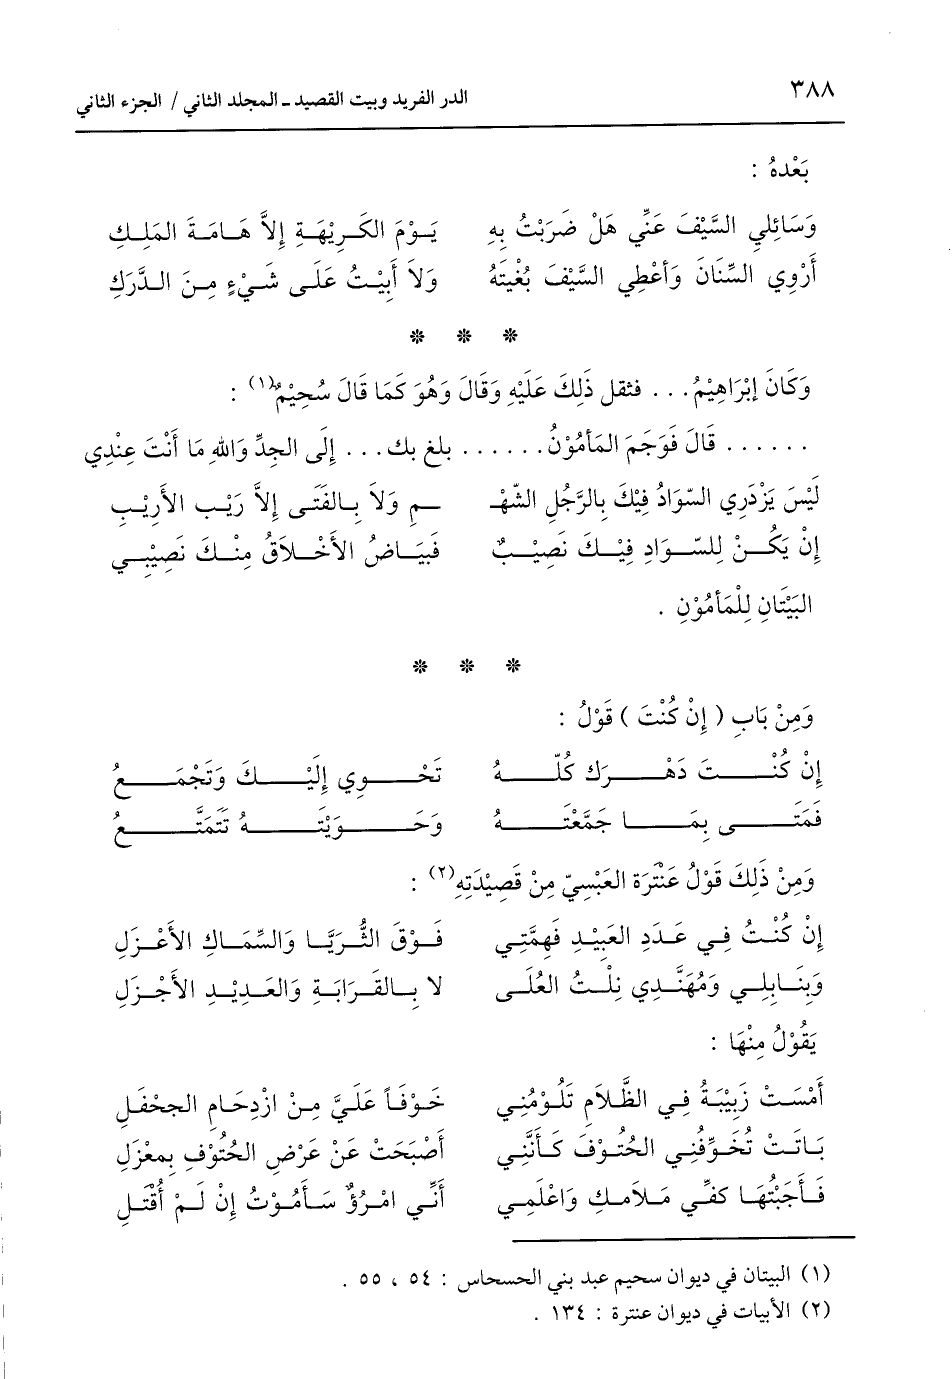 ٣٨٨ الدر الفريد وبيت القصيد ـ المجلد الثاني / الجزء الثاني
بَعْدهُ :
وَسَائِلِي السَّيْفَ عَنِّي هَلْ ضَرَبْتُ بِهِ يَوْمَ الكَرِيْهَةِ إِلاَّ هَامَةَ المَلِكِ
أَرْوِي السِّنَانَ وَأُعْطِي السَّيْفَ بُغْيَتَهُ وَلاَ أَبِيْتُ عَلَى شَيْءٍ مِنَ الدَّرَكِ
* * *
وَكَانَ إِبْرَاهِيْمُ . . . فثقل ذَلِكَ عَلَيْهِ وَقَالَ وَهُوَ كَمَا قَالَ سُحَيْمٌ(١) :
. . . . . . قَالَ فَوَجَمَ المَأمُوْنُ . . . . . . بلغ بك . . . إِلَى الجِدِّ وَاللهِ مَا أَنْتَ عِنْدِي
لَيْسَ يَزْدَرِي السّوَادُ فِيْكَ بِالرَّجُلِ الشَّهْـ ـمِ وَلاَ بِالفَتَى إِلاَّ رَيْبِ الأَرِيْبِ
إِنْ يَكُنْ لِلسَّوَادِ فِيْكَ نَصِيْبٌ فَبَيَاضُ الأَخْلاَقُ مِنْكَ نَصِيْبِي
البَيْتَانِ لِلْمَأمُوْنِ .
* * *
وَمِنْ بَابِ ( إِنْ كُنْتَ ) قَوْلُ :
إِنْ كُنْتَ دَهْرَكَ كُلَّهُ تَحْوِي إِلَيْكَ وَتَجْمَعُ
فَمَتَى بِمَا جَمَّعْتَهُ وَحَوَيْتَهُ تَتَمَتَّعُ
وَمِنْ ذَلِكَ قَوْلُ عَنْتَرَة العَبْسِيّ مِنْ قَصِيْدَتِهِ(٢) :
إِنْ كُنْتُ فِي عَدَدِ العَبِيْدِ فَهِمَّتِي فَوْقَ الثُّرَيَّا وَالسِّمَاكِ الأَعْزَلِ
وَبِنَابِلِي وَمُهَنَّدِي نِلْتُ العُلَى لا بِالقَرَابَةِ وَالعَدِيْدِ الأَجْزَلِ
يَقُوْلُ مِنْهَا :
أَمْسَتْ زَبِيْبَةُ فِي الظَّلاَمِ تَلُوْمُنِي خَوْفَاً عَلَيَّ مِنْ ازْدِحَامِ الجحْفَلِ
بَاتَتْ تُخَوِّفُنِي الحُتُوْفَ كَأَنَّنِي أَصْبَحَتْ عَنْ عَرْضِ الحُتُوْفِ بِمَعْزَلِ
فَأَجَبْتُهَا كفِّي مَلاَمكِ وَاعْلَمِي أَنِّي امْرُؤٌ سَأَمُوْتُ إِنْ لَمْ أُقْتَلِ
(١) البيتان في ديوان سحيم عبد بني الحسحاس : ٥٤ ، ٥٥ .
(٢) الأبيات في ديوان عنترة : ١٣٤ .